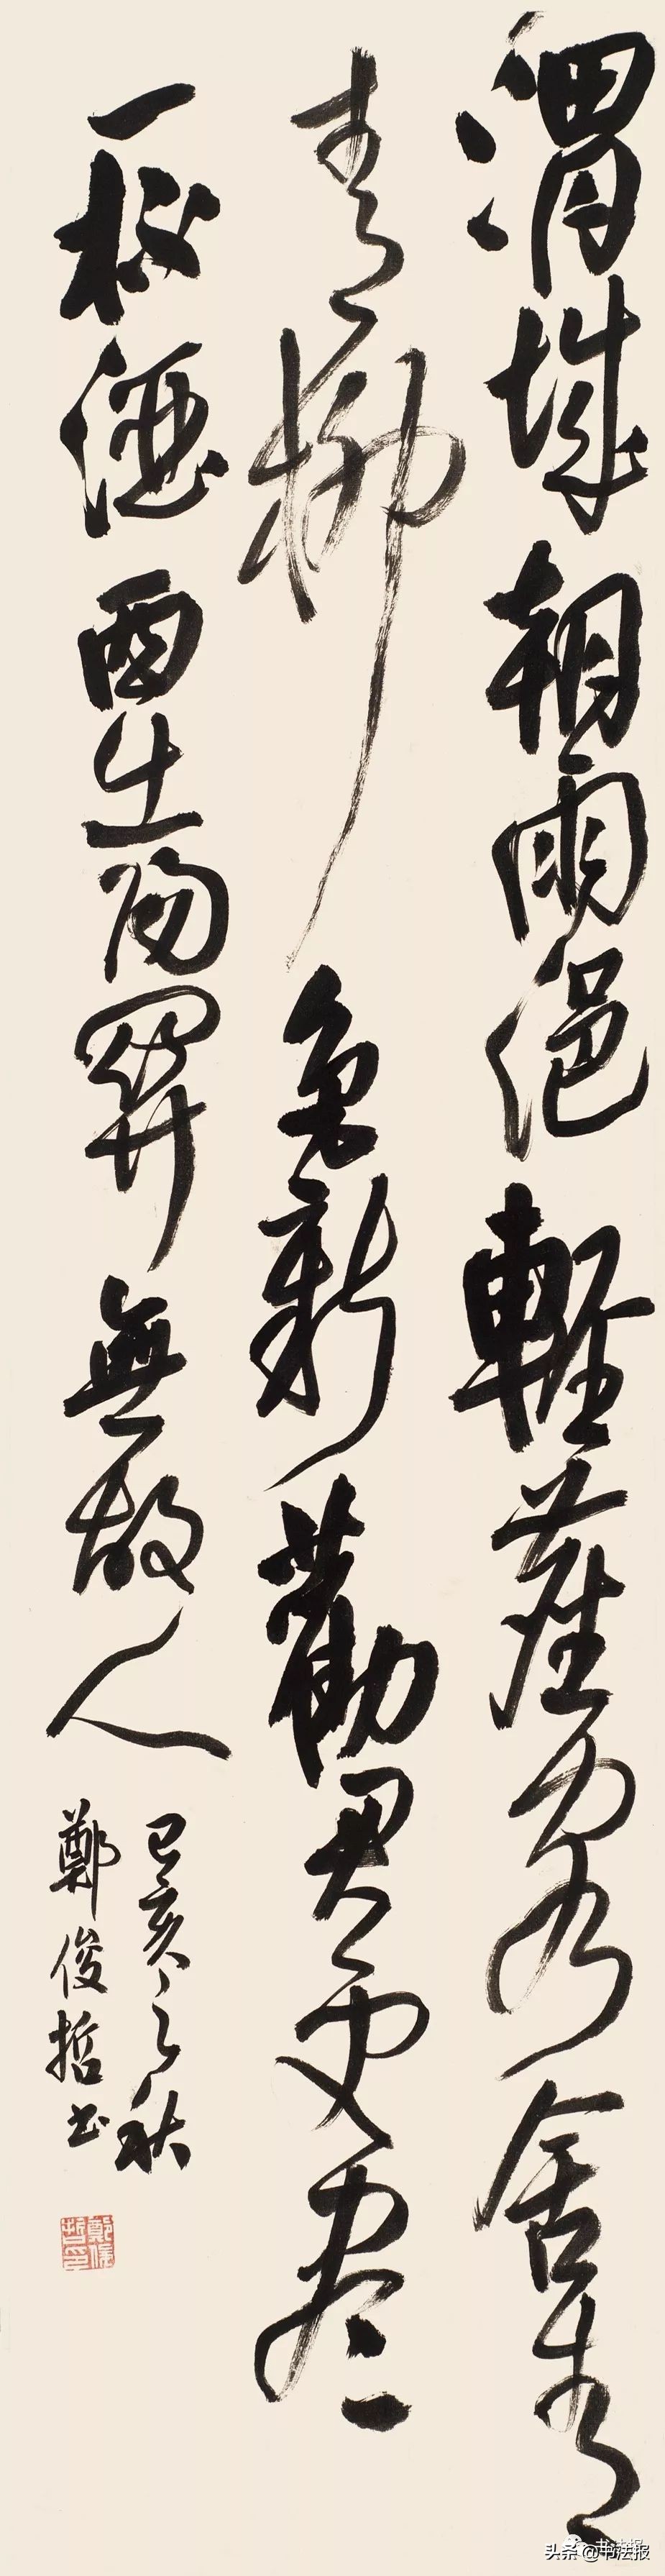 渭城朝雨浥輕塵客舍青
青柳色新勸君更盡
一杯酒西出陽關無故人
己亥之秋
鄭俊哲书
鄭俊哲印
头条@书法报